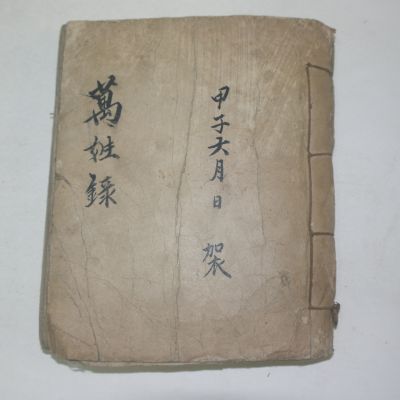 萬姓錄
甲子六月 日 袈